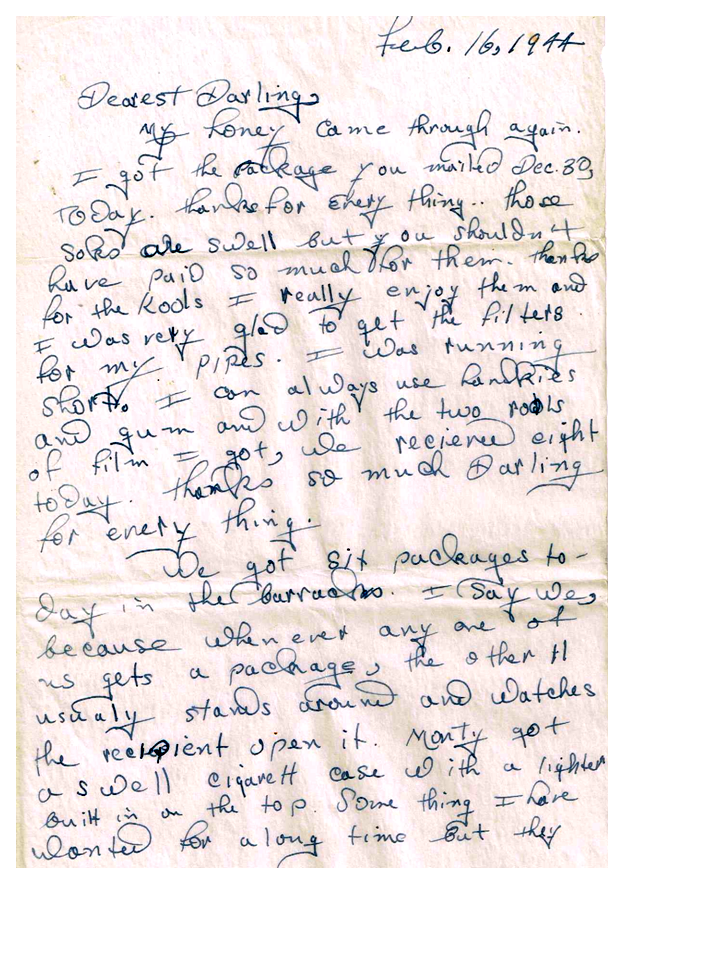 Feb. 16, 1944
Dearest Darling,
My honey came through again.
I got the package you mailed Dec. 30,
Today. thanks for every thing.. those
soks are swell but you shouldn't
have paid so much for them. thanks
for the Kools I really enjoy them and
I was very glad to get the filters
for my pipes. I was running
short. I can always use hankies
and gum and with the two rools
of film I got, we recieved eight
today. thanks so much Darling
for every thing.
We got six packages to-
day in the barracks. I say we,
because when ever any one of
us gets a package, the other 11
usualy stands around and watches
the recipient open it. Monty got
a swell cigarett case with a lighter
built in on the top. Some thing I have
wanted for a long time But they